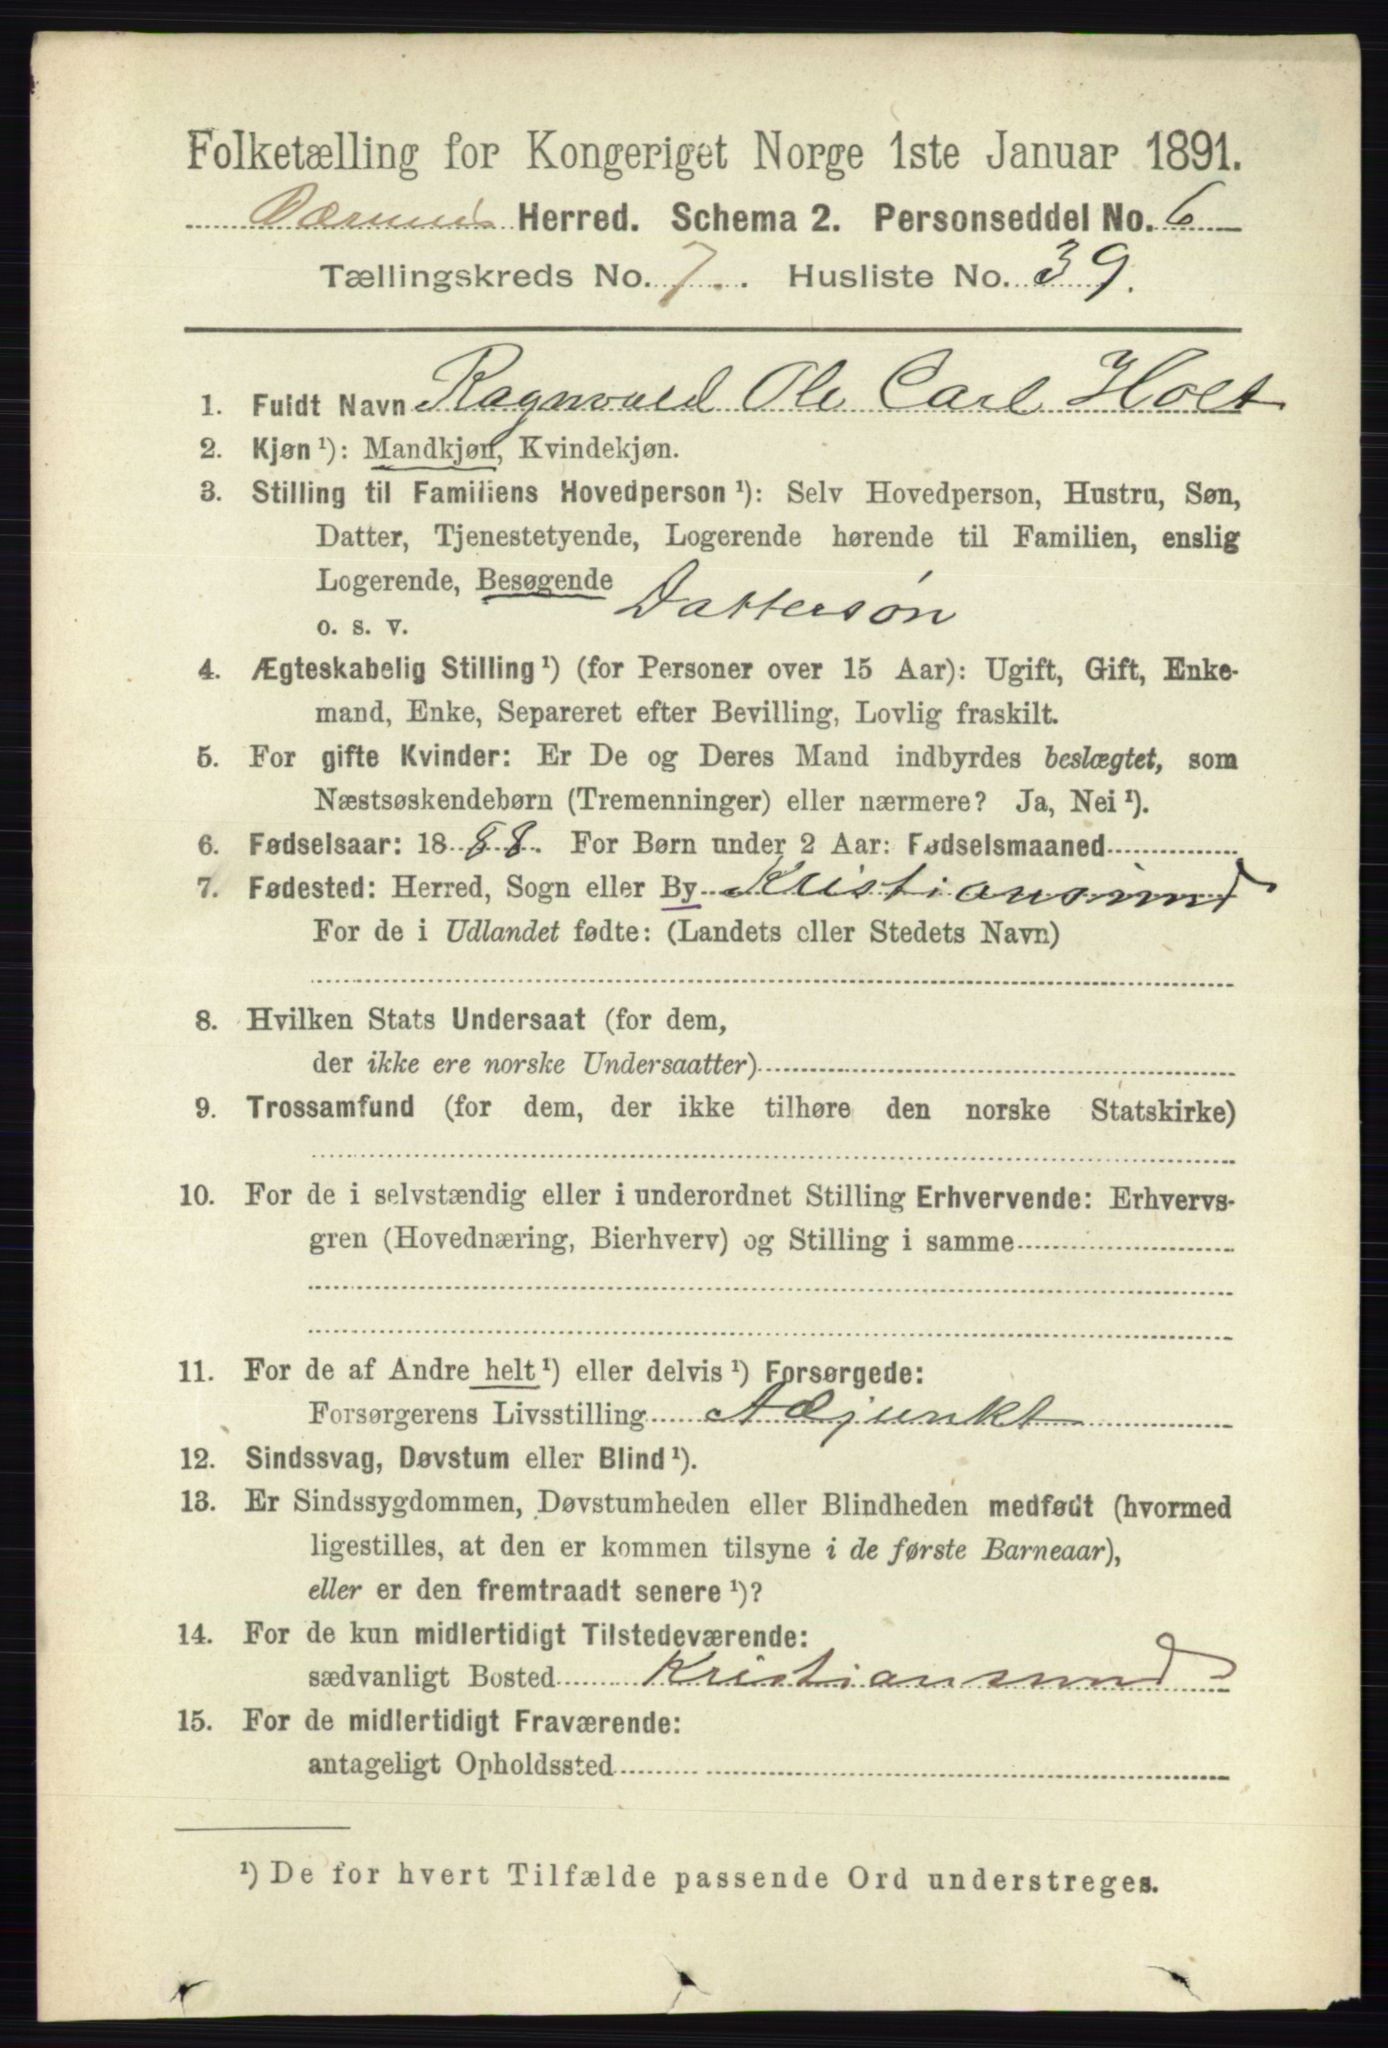 Folketælling for Kongeriget Norge 1ste Januar 1891.
Herred. Schema 2. Personseddel No. 6
Tællingskreds No. 7. Husliste No. 39.
1. Fuldt Navn Ragnvald Ole Carl Holt
2. Kjøn ¹): Mandkjøn, Kvindekjøn.
3. Stilling til Familiens Hovedperson ¹): Selv Hovedperson, Hustru, Søn,
Datter, Tjenestetyende, Logerende hørende til Familien, enslig
Logerende, Besøgende Dattersøn
o. s. v.
4. Ægteskabelig Stilling ¹) (for Personer over 15 Aar): Ugift, Gift, Enke-
mand, Enke, Separeret efter Bevilling, Lovlig fraskilt.
5. For gifte Kvinder: Er De og Deres Mand indbyrdes beslægtet, som
Næstsøskendebørn (Tremenninger) eller nærmere? Ja, Nei ¹).
6. Fødselsaar: 1888. For Børn under 2 Aar: Fødselsmaaned
7. Fødested: Herred, Sogn eller By Kristiansund
For de i Udlandet fødte: (Landets eller Stedets Navn)
8. Hvilken Stats Undersaat (for dem,
der ikke ere norske Undersaatter)
9. Trossamfund (for dem, der ikke tilhøre den norske Statskirke)
10. For de i selvstændig eller i underordnet Stilling Erhvervende: Erhvervs-
gren (Hovednæring, Bierhverv) og Stilling i samme
11. For de af Andre helt ¹) eller delvis ¹) Forsørgede:
Forsørgerens Livsstilling Adjunkt
12. Sindssvag, Døvstum eller Blind ¹).
13. Er Sindssygdommen, Døvstumheden eller Blindheden medfødt (hvormed
ligestilles, at den er kommen tilsyne i de første Barneaar),
eller er den fremtraadt senere ¹)?
14. For de kun midlertidigt Tilstedeværende:
sædvanligt Bosted Kristiansund
15. For de midlertidigt Fraværende:
antageligt Opholdssted
¹) De for hvert Tilfælde passende Ord understreges.